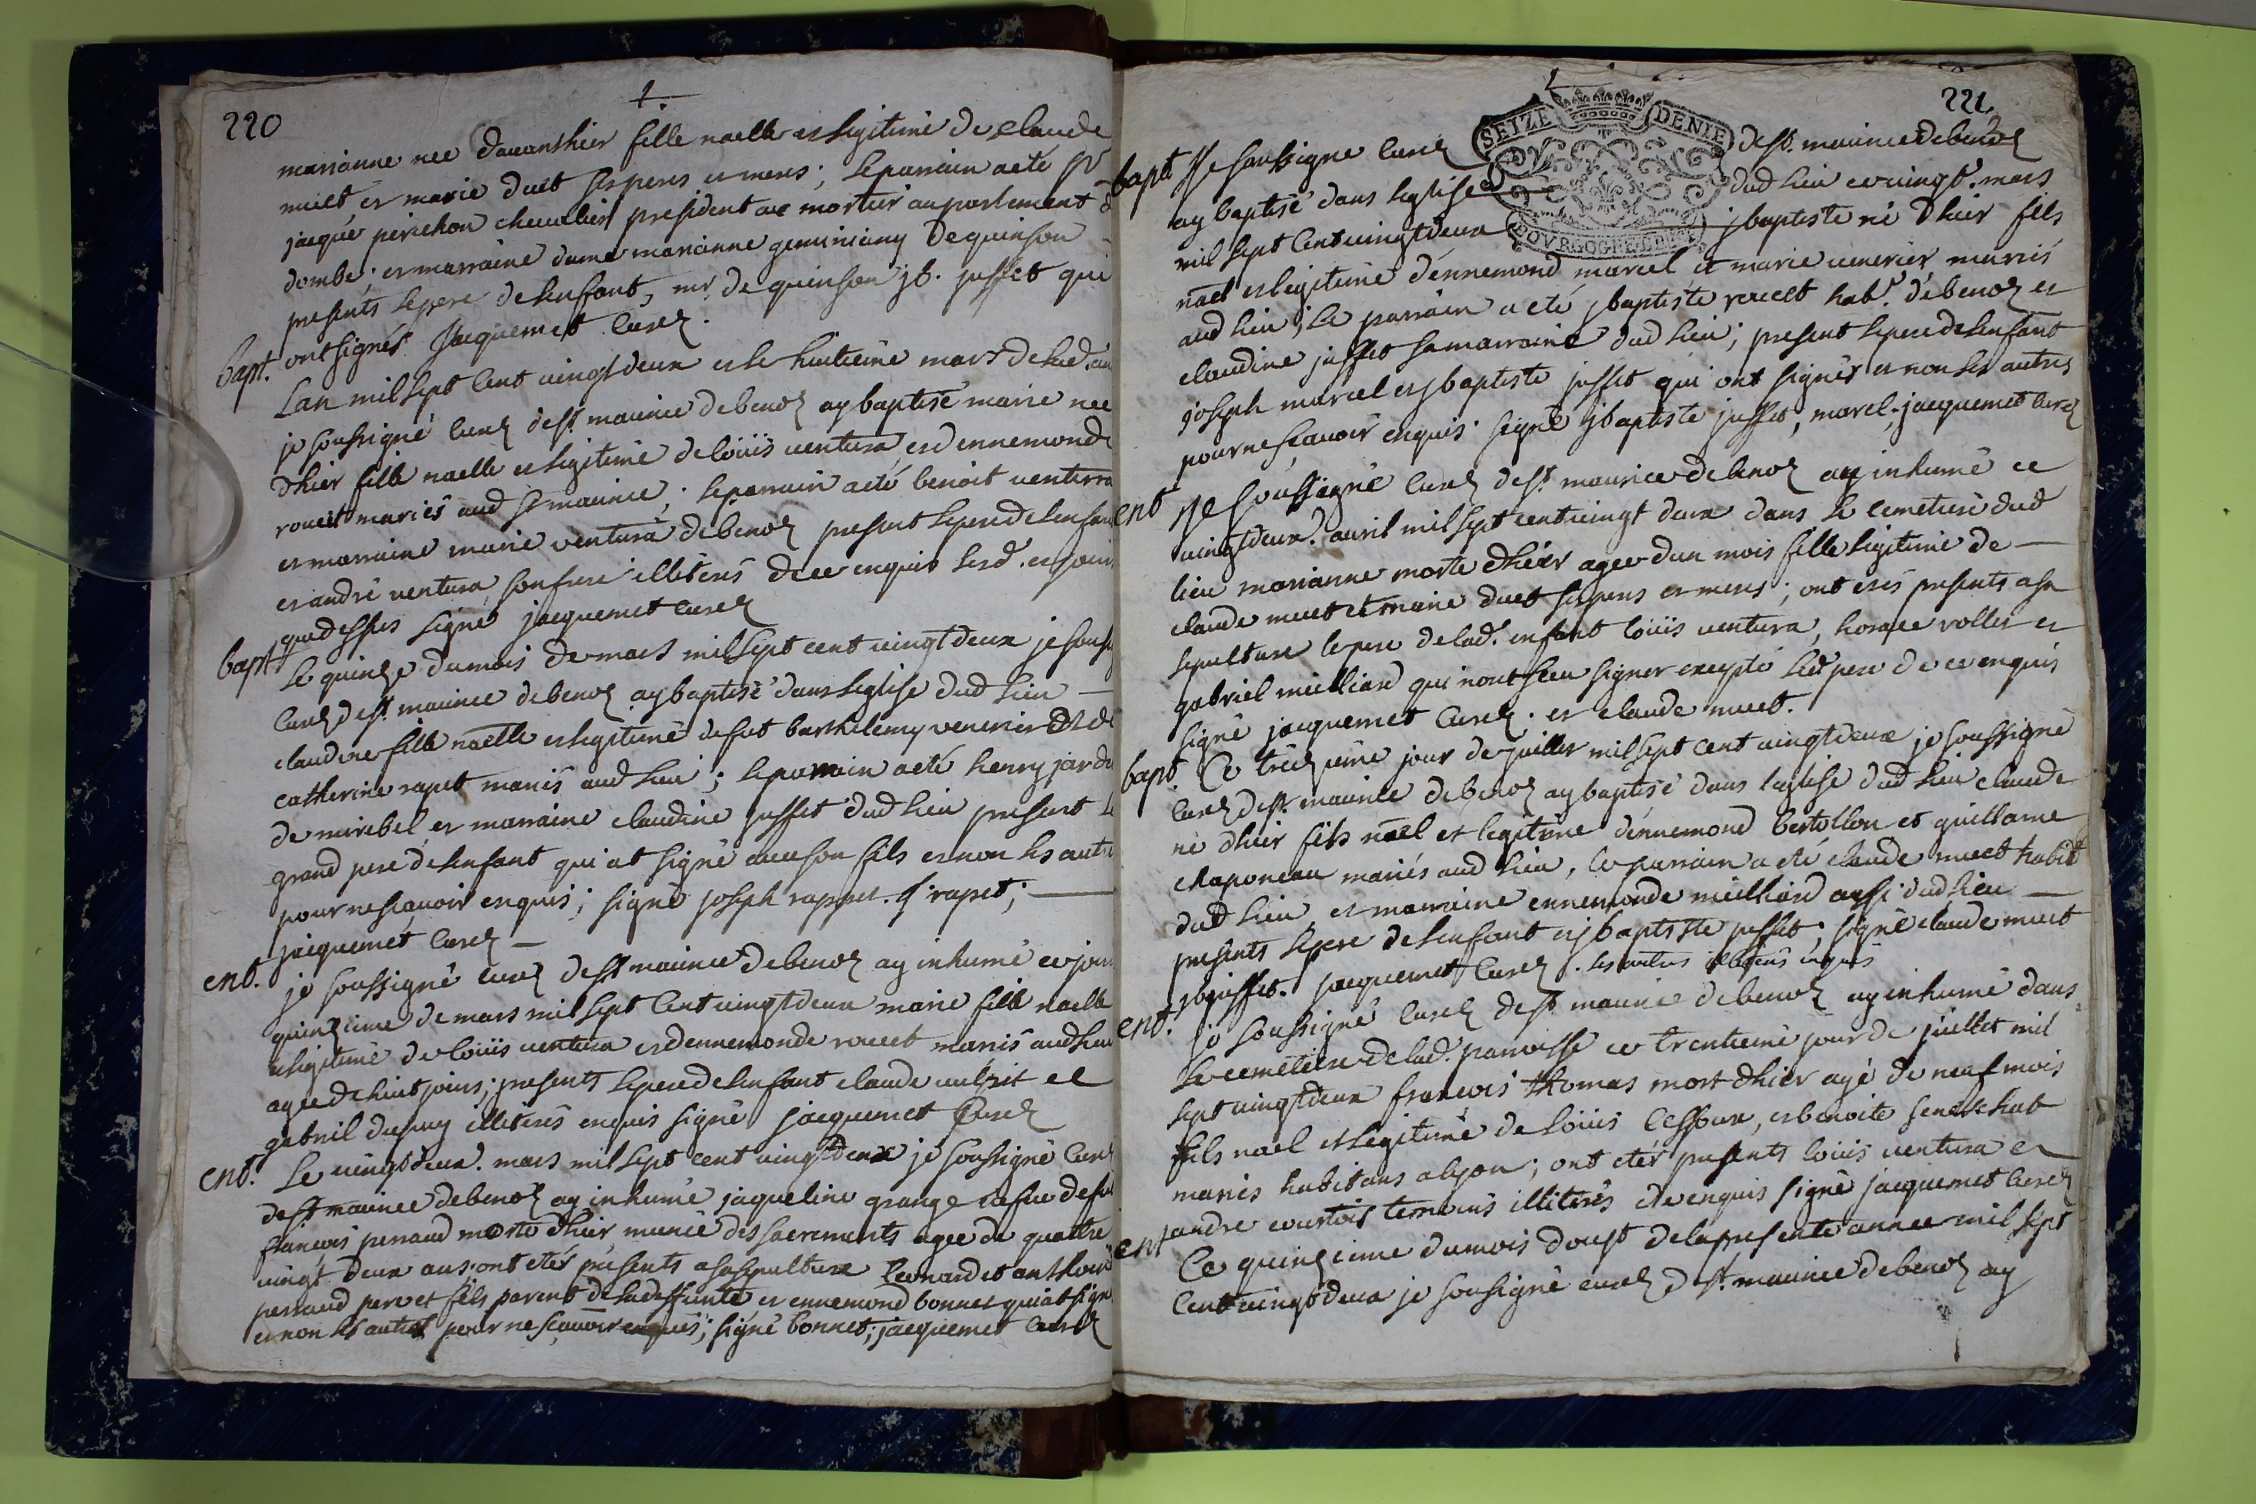 220
marianne nee davanthier fille naelle et legitime de claude
muet et marie duet ses peres et meres; le parrain a eté Sr
jaque perichon chevallier president a mortier au parlement d
dombe; et marraine dame marianne geminiany de quinson
presents le pere de lenfant, mr. de quinson jb. jusset qui
ont signés. Jacquemet Curez.
bapt. Lan mil sept cent vingt deux et le huitieme mars de lad. an
je soussigné Curez de st maurice de benoz ay baptisé marie nee
dhier fille naelle et legitime de louis ventura et dennemonde
rouet mariés aud st maurice; le parrain a eté benoit ventura
et marraine marie ventura de benoz present le pere de lenfant
et andré ventura son frere illiterés de ce enquis lesd. et jour
que dessus signé jacquemet Curez
bapt Le quinze du mois de mars mil sept cent vingt deux je souss
Curez de st maurice de benoz ay baptisé dans leglise dud lieu
claudine fille naelle et legitime de fut barthelemy venerier et de
catherine rapet mariés aud lieu; le parrain a eté henry jardi
de miribel et marraine claudine jusset dud lieu present le
grand pere de lenfant qui at signé avec son fils et non les autres
pour ne scavoir enquis; signé joseph rappet. f rapet;
jacquemet Curez
ent. je soussigné curez de st maurice de benoz ay inhumé ce jour
quinzieme de mars mil sept cent vingt deux marie fille naelle
et legitime de louis ventura et dennemonde rouet mariés aud lieu
agee de huit jours; presents le pere de lenfant claude vulpit et
gabriel dupuy illiterés enquis signé jacquemet Curez
ent. Le vingt deux. mars mil sept cent vingt deux je soussigné Curez
de st maurice de benoz ay inhumé jaqueline grange vefve de fut
francois perraud morte dhier munie des sacrements agee de quattre
vingt deux ans; ont etés presents a sa sepulture Leonard et anthoine
perraud pere et fils parents de la deffunte et ennemond bonnet qui at signé
et non les autres pour ne scavoir enquis; signé bonnet; jacquemet Curez
221
SEIZE DENIE
BOURGOGNE
bapt Je soussigné Curez de st. maurice de benoz
ay baptisé dans leglise dud lieu ce vingt. mars
mil sept Cent vingt deux jbaptiste né dhier fils
nael et legitime dennemond marcel et marie venerier mariés
aud lieu; le parrain a eté jbaptiste rouet habt. de benoz et
claudine jusset sa marraine dud lieu; present le pere de lenfant
joseph marcel et jbaptiste jusset qui ont signés et non les autres
pour ne scavoir enquis. signé jbaptiste jusset, marcel, jacquemet Curez
ent Je soussigné Curez de st. maurice de benoz ay inhumé ce
vingt deux. avril mil sept cent vingt deux dans le cemetiere dud
lieu marianne morte dhier agee dun mois fille legitime de
claude muet et marie duet ses peres et meres; ont etés presents a sa
sepulture le pere de lad. enfant louis ventura, horace rollet et
gabriel meilliard qui nont sceu signer excepté led pere de ce enquis
signé jacquemet Curez. et claude muet.
bapt. Ce treizieme jour de juillet mil sept cent vingt deux je soussigné
Curez de st. maurice de benoz ay baptisé dans leglise dud lieu claude
né dhier fils nael et legitime dennemond bertollon et guillame
chaponeau mariés aud lieu, le parrain a eté claude muet habit
dud lieu et marraine ennemonde meilliard aussi dud lieu
presents le pere de lenfant et jbaptiste jusset; signé claude muet
jbjusset. jacquemet Curez. les autres illiterés enquis
ent. je soussigné Curez de st maurice de benoz ay inhumé dans
le cemetiere de lad. parroisse ce trentieme jour de juillet mil
sept vingt deux francois thomas mort dhier agé de neuf mois
fils nael et legitime de louis et benoite
mariés habitans a lyon; ont etés presents louis ventura et
andre courtois temoins illiterés de ce enquis signé jacquemet Curez
ent Ce quinzieme du mois doust de la presente annee mil sept
Cent vingt deux je soussigné curez de st. maurice de benoz ay